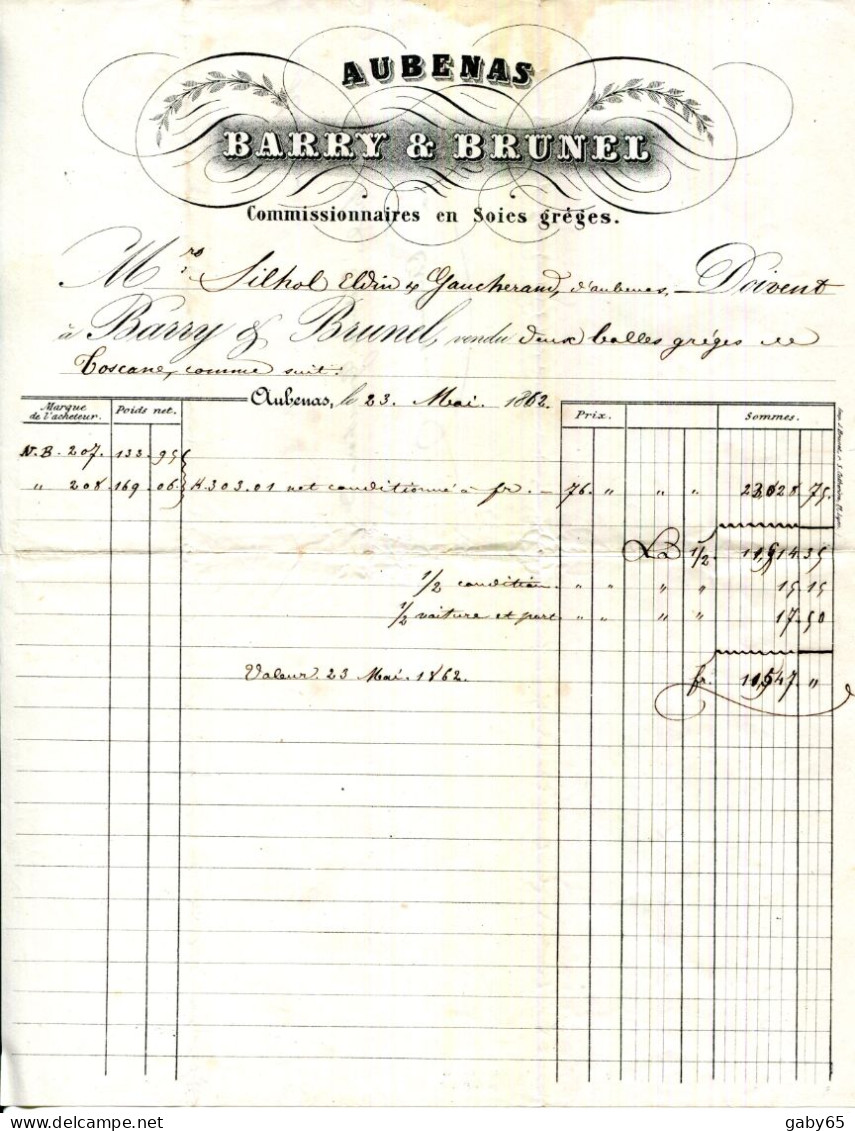 AUBENAS
BARRY & BRUNEL
Commissionnaires en Soies grèges.
Mrs Silhol Eldin & Gaucherand, d'aubenas, Doivent
à Barry & Brunel, vendu deux balles grèges de
Toscane, comme suit:
Aubenas, le 23. Mai. 1862.
Marque de l'acheteur. Poids net. Prix. Sommes.
N.B. 207. 133. 95
" 208. 169. 06. K. 303.01 net conditionné à fr. 76. " " " 23,028. 75.
1/2 11,514. 35
1/2 condition " " " " 15. 15
1/2 voiture et port " " " " 17. 50
Valeur 23 Mai. 1862. fr. 11,547. "
delcampe.net
gaby65